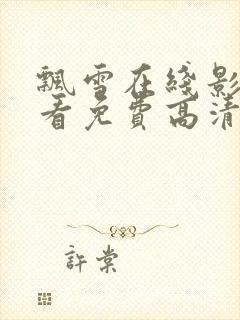 飄雪在綫影
看免費高清
許棠